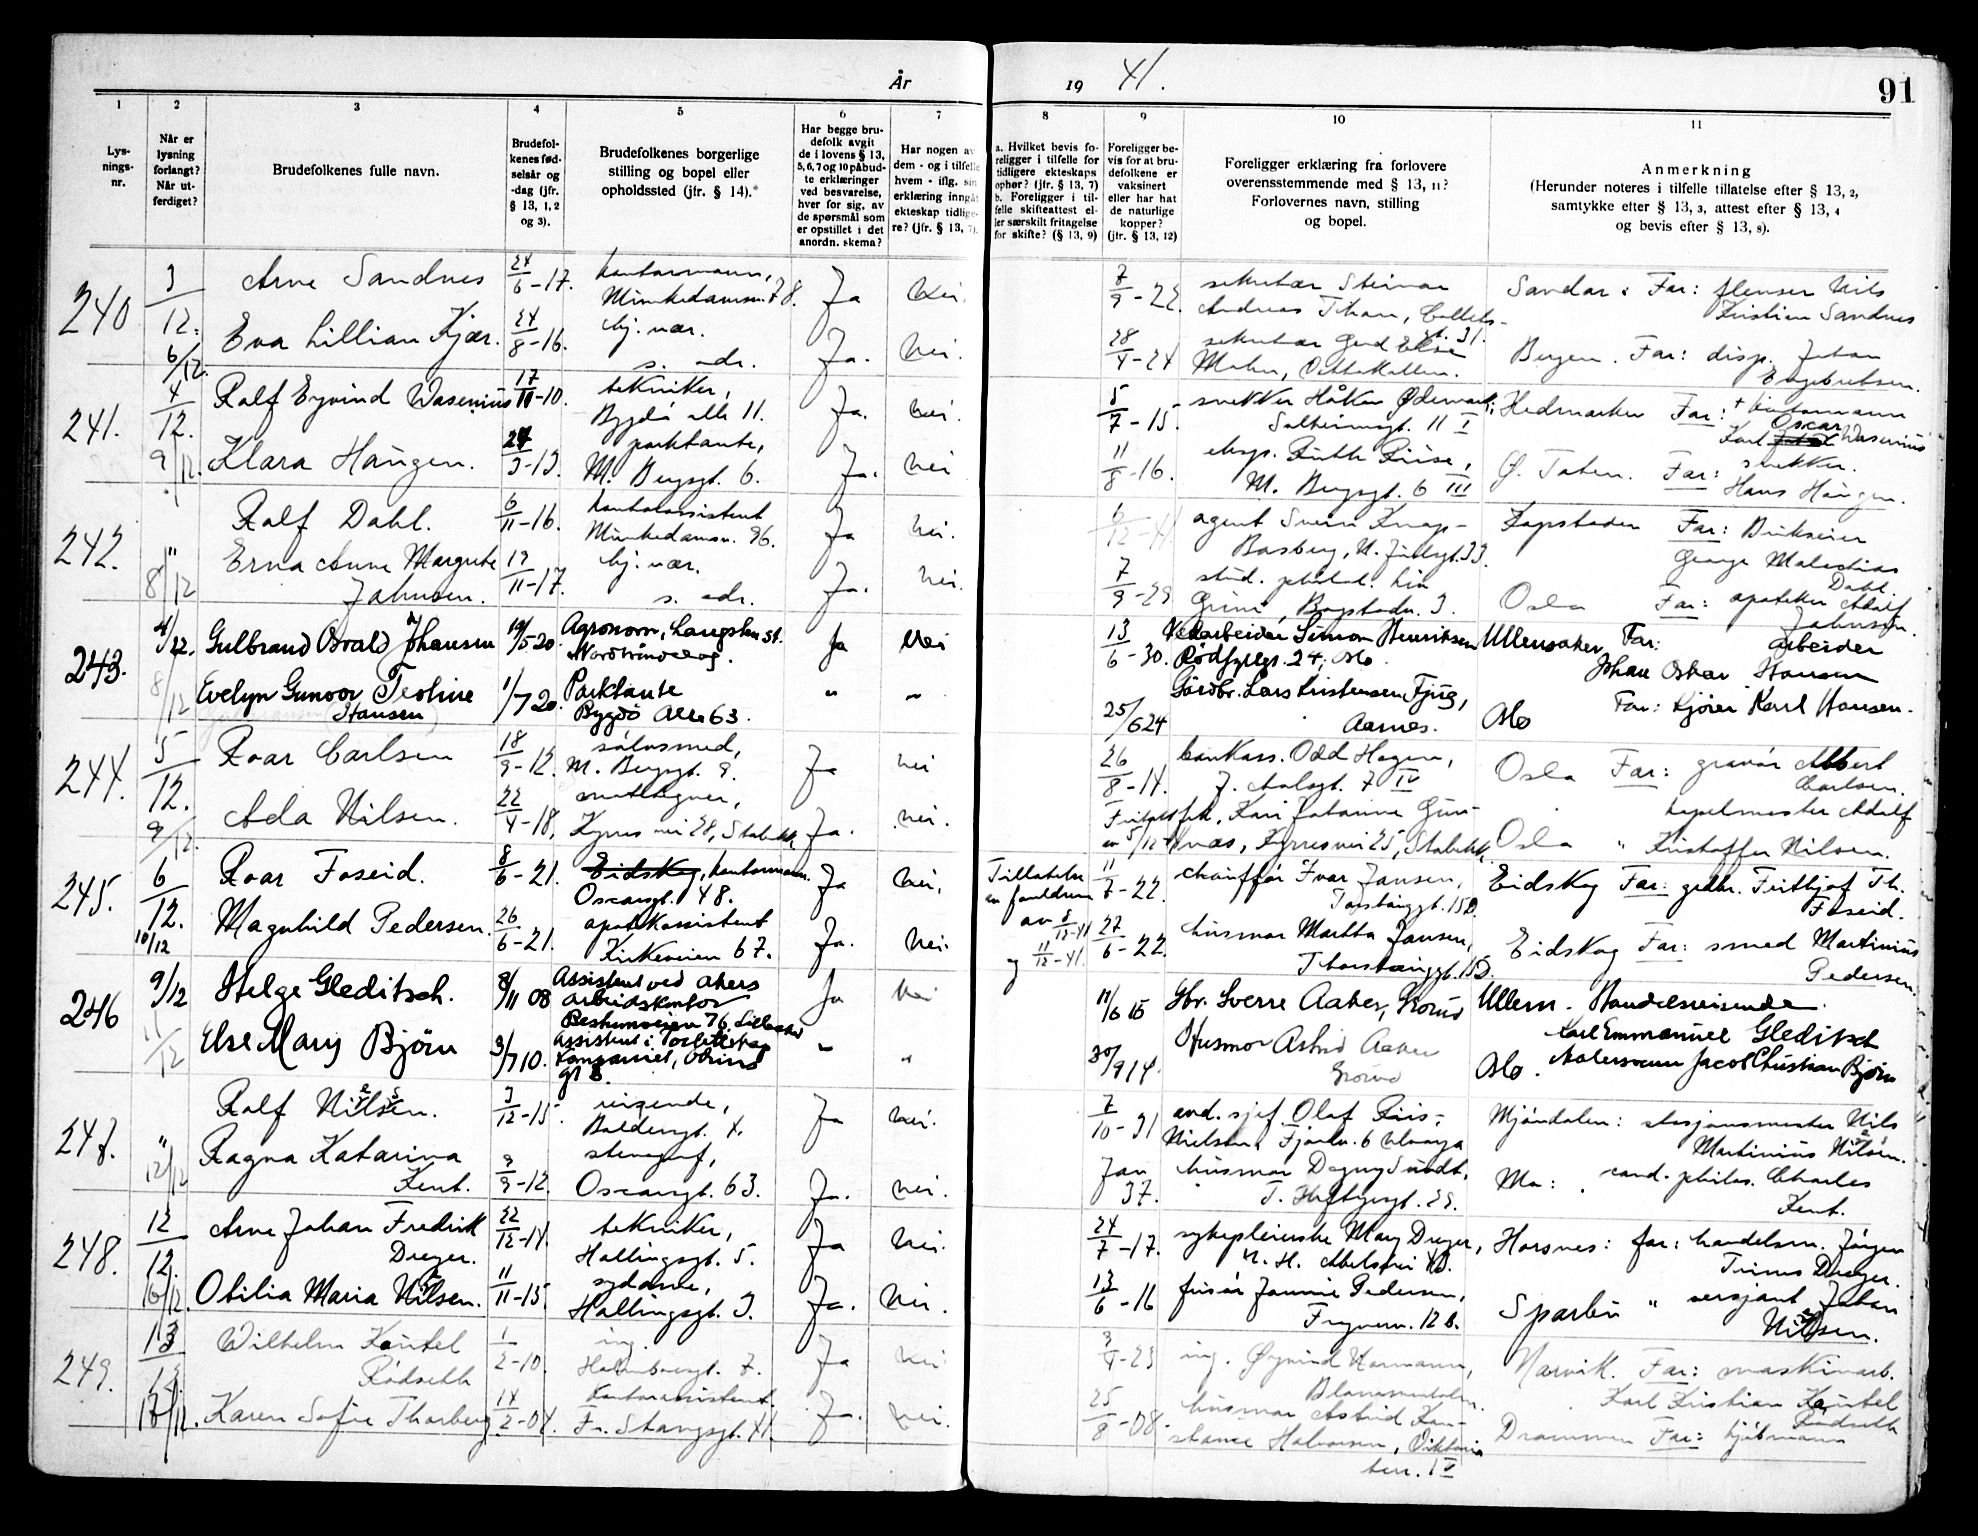 År 19 41.
91
1
Lysnings-nr.
2
Når er lysning forlangt? Når utferdiget?
3
Brudefolkenes fulle navn.
4
Brudefolkenes fødselsår og -dag (jfr. § 13, 1, 2 og 3).
5
Brudefolkenes borgerlige stilling og bopel eller opholdssted (jfr. § 14).
6
Har begge brudefolk avgit de i lovens § 13, 5, 6, 7 og 10 påbudte erklæringer ved besvarelse, hver for sig, av de spørsmål som er opstillet i det anordn. skema?
7
Har nogen av dem - og i tilfelle hvem - iflg. sin erklæring inngått ekteskap tidligere? (jfr. § 13, 7).
8
a. Hvilket bevis foreligger i tilfelle for tidligere ekteskaps ophør? (jfr. § 13, 7)
b. Foreligger i tilfelle skifteattest eller særskilt fritagelse for skifte? (§ 13, 9)
9
Foreligger bevis for at brudefolkene er vaksinert eller har hat de naturlige kopper? (jfr. § 13, 12)
10
Foreligger erklæring fra forlovere overensstemmende med § 13, 11? Forlovernes navn, stilling og bopel.
11
Anmerkning
(Herunder noteres i tilfelle tillatelse efter § 13, 2, samtykke efter § 13, 3, attest efter § 13, 4 og bevis efter § 13, 8).
240 3/12. 6/12.
Arne Sandnes 24/6-17. kontormann, Munkedamsv. 78. Ja Nei. 7/9-22. sekretær Steinar Andreas Than, Sandar: Far: flenser Nils Kristian Sandnes
Eva Lillian Kjær. 24/8-16. hj. vær. s. adr. Ja. Nei. 28/4-24 sekretær Gerd Else Bergen. Far: disp. Johan Engebretsen.
241. 4/12. 9/12.
Ralf Eyvind Wasenius 17/11-10. tekniker, Bygdø alle 11. Ja. Nei. 5/7-15. snekker Håkon Ødemark, 11 I Hedmarken Far: + kontormann Karl Oscar Wasenius
Klara Haugen. 27/3-13. parktante, M. Bergsgt. 6. Ja. Nei 11/8-16. eksp. Ruth Riise, M. Bergsgt. 6 III Ø. Toten. Far: snekker. Hans Haugen.
242. " 8/12
Ralf Dahl. 6/11-16. kontorassistent Munkedamsv. 96. Ja Nei. 6/12-41 agent Svein Knap- Basberg, Kapstaden Far: George Malachias Dahl.
Erna Anne Margrete Jahnsen. 19/11-17. hj. vær. s. adr. Ja. Nei. 7/9-29 stud. philol. Liv Bogstadv. 3. Oslo Far: apoteker Adolf Jahnsen.
243. 4/12. 8/12
Gulbrand Osvald Johansen 19/5-20. Agronom, Langstein st. Nordtrøndelag. Ja Nei 13/6-30. Simon Henriksen Rødfyllgt. 24, Oslo. Ullensaker Far: arbeider Johan Oskar Hansen
Evelyn Gunvor Teoline Hansen 1/7 20. Parktante Bygdö Alle 63. " " 25/6 24 Gårdbr. Lars Kristensen Fjug, Aarnes. Oslo Far: Kjører Karl Hansen.
244. 5/12. 9/12.
Roar Carlsen 18/9-12. sølvsmed, M. Bergsgt. 9. Ja Nei 26/8-14. bankass. Odd Hagen, J. Aalsgt. 7 IV Oslo Far: gravør Albert Carlsen.
Ada Nilsen. 22/4-18. Kyrres vei 28, Stabekk Ja. Nei. frk. Kari Johanne Kyrresvei 25, Stabekk. Oslo " kapelmester Adolf Kristoffer Nilsen.
245. 6/12. 10/12
Roar Foseid. 8/6-21. Eidskog, kontormann. Oscarsgt. 48. Ja Nei. Tillatelse av foreldrene av 8/12-41 og 11/12-41. 11/7-22. chauffør Ivar Jansen, Torstensgt. 15D. Eidskog Far: grdbr. Fritljof Th. Foseid.
Magnhild Pedersen. 26/6-21. apotekassistent Kirkeveien 67. Ja. Nei. 27/6-22. husmor Martha Jansen, 15D. Eidskog Far: smed Martinius Pedersen.
246 9/12 11/12
Helge Gleditsch. 8/11 08 Assistent ved Akers arbeidskontor Bestumveien 76, Lilleaker Ja Nei 11/6 15 Gbr. Sverre Aaker, Grorud Ullern. Handelsreisende. Karl Emmanuel Gleditsch
Else Mary Bjørn 3/7 10. Assistent i gt 8. " " 30/9 14 Husmor Astrid Aaker Grorud Oslo. Jacob Christian Bjørn
247. " 12/12
Ralf Nilsen. 3/12-15. reisende, Baldersgt. 4. Ja Nei. 7/10-31 avd. sjef Olaf Riis-Nielsen, Mjøndalen: stasjonsmester Nils Martinius Nilsen.
Ragna Katarina Kent. 9/9-12. stenograf, Oscarsgt. 63. Ja. Nei. Jan 37. husmor Dagny Sundt, T. Heftyesgt. 29. Ma: cand. philos. Charles Kent.
248. 12/12. 16/12.
Arne Johan Fredrik Dreyer. 22/12-14. tekniker, Hallingsgt. 5. Ja Nei. 24/7-17. sykepleierske Mary Dreyer, N. H. Abelsvei Horsnes: far: handelsm. Jørgen Dreyer.
Otilia Maria Nilsen. 11/11-15. sydame, Hallingsgt. 3. Ja. Nei. 13/6-16 frisør Jannie Pedersen, Frognerv. 12 b. Sparbu " sersjant Johan Nilsen.
249. 13/12. 18/12.
Wilhelm Kautel Rødseth 1/2-10. ing. Holmboesgt. 7. Ja Nei 3/4-23 ing. Øyvind Normann, Narvik. Far: maskinarb. Karl Kristian Kautel Rødseth
Karen Sofie Thorberg 14/2-04. kontorassistent. Fr. Stangsgt. 41. Ja. Nei. 25/8-08. husmor Astrid Konstance Halvorsen, Viktoria terr. 1 V Drammen Far: kjøbmann